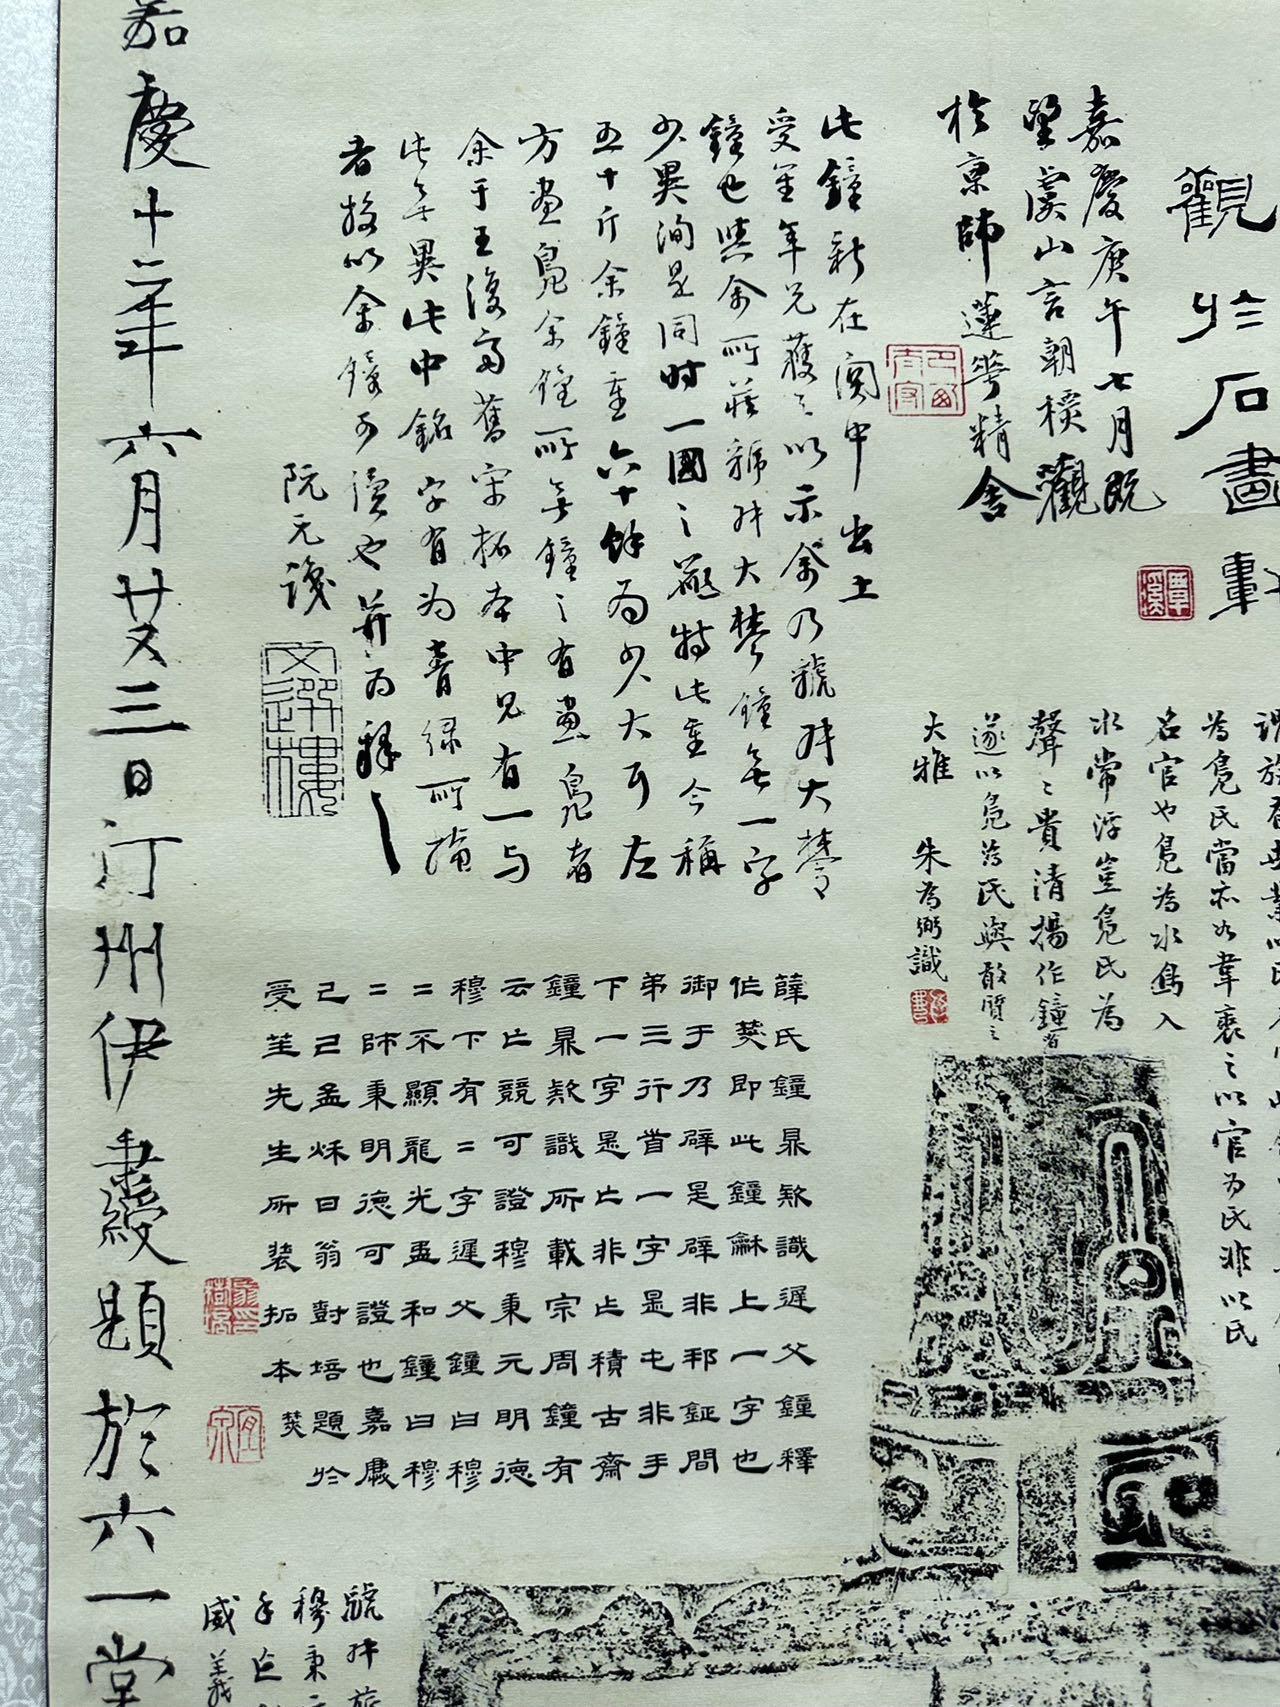 觀於石畫軒
嘉慶庚午七月既
望虞山言朝標觀
於京師蓮花精舍
此鐘新在關中出土
受笙年兄獲之以示余乃虢叔大棽
鐘也與余所藏虢叔大棽鐘無一字
少異洵是同時一國之器特此重今稱
五十斤余鐘重六十餘為少大耳左
方畫鳧余鐘所無鐘之有畫鳧者
余于王復齋舊宋拓本中見有一与
此無異此中銘字有为青绿所掩
者校以余鐘可讀也并为释之
阮元識
文選樓
為鳧氏當亦如韋裘之以官为氏非以氏
名官也鳧為水鳥入
水常浮豈鳧氏為
聲聲貴清揚作鐘者
遂以鳧為氏與敢質之
大雅 朱為弼識
薛氏鐘鼎款識遲父鐘釋
作焚即此鐘龢上一字也
御于乃辟是辟非邗鉦間
弟三行首一字是屯非手
下一字是亡非亾積古齋
鐘鼎款識所載宗周鐘有
云亡競可證穆秉元明德
穆下有二字遲父鐘曰穆
二不顯龍光盄和鐘曰穆
二帥秉明德可證也嘉慶
己巳孟秌曰翁尌培題於
受笙先生所裝拓本
嘉慶十二年六月廿三日汀州伊秉綬題於六一堂
虢叔旅
穆秉元
威義